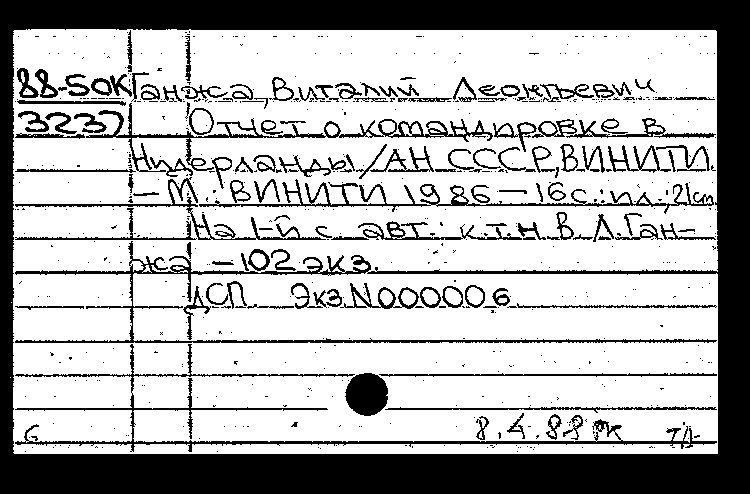 88-50К Ганжа, Виталий Леонтьевич
3237 Отчет о командировке в
Нидерланды /АН СССР, ВИНИТИ.
— М.: ВИНИТИ, 1986 — 16 с.: ил.; 21 cm
На 1-й с. авт.: к.т.н. В. Л. Ган-
жа — 102 экз.
ДСП. Экз. N000006.
6 8.4.88 РК